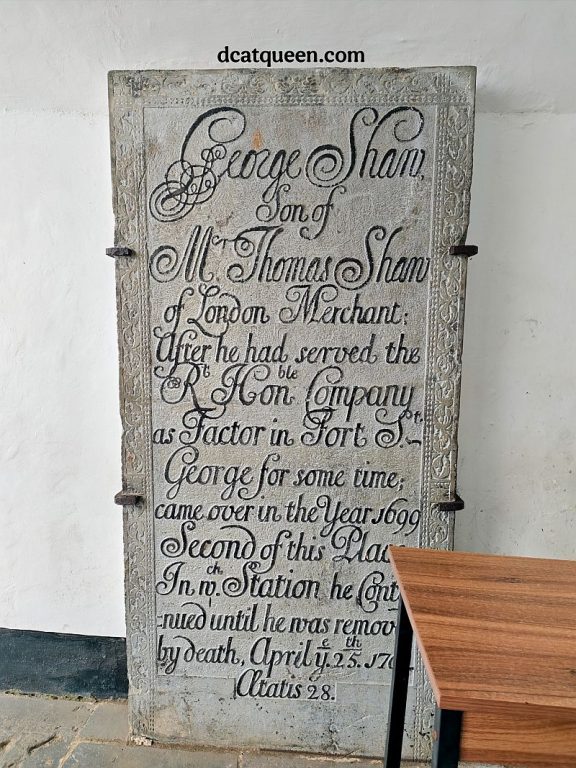 dcatqueen.com
George Shaw,
Son of
Mr. Thomas Shaw
of London Merchant:
After he had served the
Rt. Honble. Company
as Factor in Fort St.
George for some time;
came over in the Year 1699
Second of this
In wch. Station he
-nued until he was
by death, April ye. 25th.
Ætatis 28.